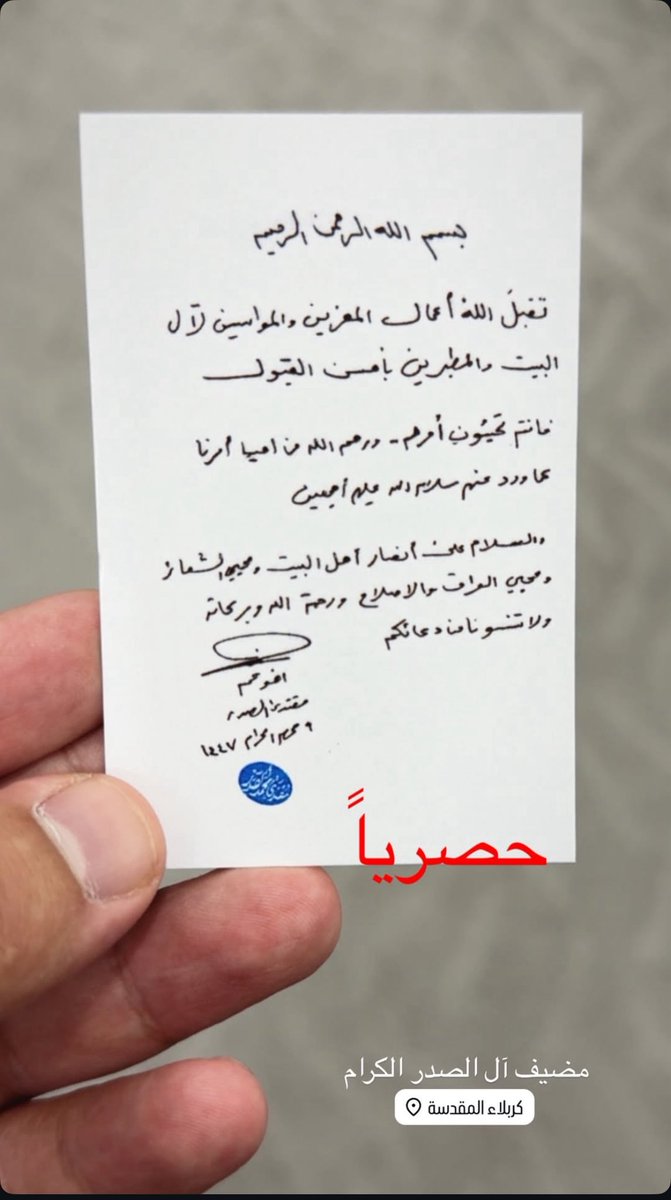 بسم الله الرحمن الرحيم
تقبلَ اللهُ أعمال المعزين والمواسين لآل
البيت والمطبرين بأحسن القبول
فانتم تحيُون أمرهم - ورحم الله من احيا أمرنا
كما ورد عنهم سلام الله عليهم أجمعين
والسلام على أنصار أهل البيت ومحيي الشعائر
ومحبي العراق والاصلاح ورحمة الله وبركاته
ولا تنسونا من دعائكم
اخوكم
مقتدى الصدر
٩ محرم الحرام ١٤٤٧
حصرياً
مضيف آل الصدر الكرام
كربلاء المقدسة